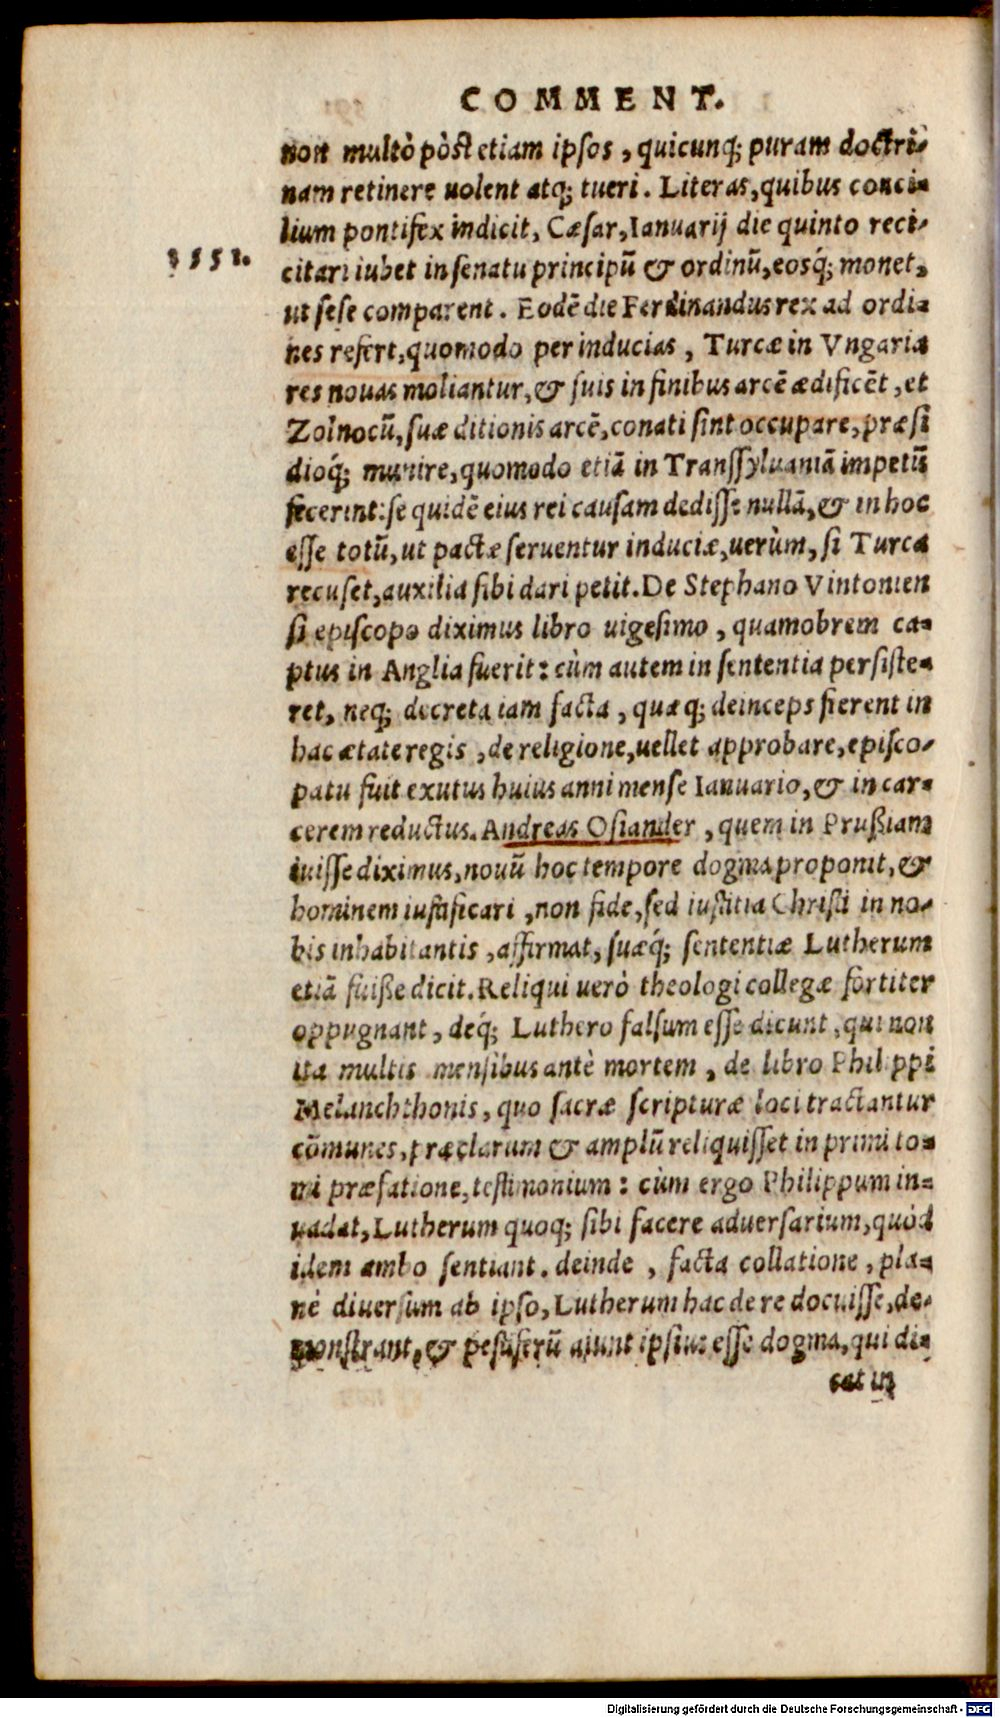 COMMENT.
non multò pòst etiam ipsos, quicunq; puram doctri-
nam retinere uolent atq; tueri. Literas, quibus conci-
lium pontifex indicit, Cæsar, Ianuarij die quinto reci-
1551.
citari iubet in senatu principũ & ordinũ, eosq́; monet,
ut sese comparent. Eodẽ die Ferdinandus rex ad ordi-
nes refert, quomodo per inducias, Turcæ in Vngaria
res nouas moliantur, & suis in finibus arcẽ ædificẽt, et
Zolnocũ, suæ ditionis arcẽ, conati sint occupare, præsi
dioq́; munire, quomodo etiã in Transsyluaniã impetũ
fecerint: se quidẽ eius rei causam dedisse nullã, & in hoc
esse totũ, ut pactæ seruentur induciæ, uerùm, si Turca
recuset, auxilia sibi dari petit. De Stephano Vintonien
si episcopo diximus libro uigesimo, quamobrem ca-
ptus in Anglia fuerit: cùm autem in sententia persiste-
ret, neq; decreta iam facta, quæq; deinceps fierent in
hac ætate regis, de religione, uellet approbare, episco-
patu fuit exutus huius anni mense Ianuario, & in car-
cerem reductus. Andreas Osiander, quem in Prußiam
iuisse diximus, nouũ hoc tempore dogma proponit, &
hominem iustificari, non fide, sed iustitia Christi in no-
bis inhabitantis, affirmat, suæq́; sententiæ Lutherum
etiã fuiße dicit. Reliqui uerò theologi collegæ fortiter
oppugnant, deq́; Luthero falsum esse dicunt, qui non
ita multis mensibus antè mortem, de libro Philippi
Melanchthonis, quo sacræ scripturæ loci tractantur
cõmunes, præclarum & amplũ reliquisset in primi to-
mi præfatione, testimonium: cùm ergo Philippum in-
uadat, Lutherum quoq; sibi facere aduersarium, quòd
idem ambo sentiant. deinde, facta collatione, pla-
nè diuersum ab ipso, Lutherum hac de re docuisse, de-
monstrant, & pestiferũ aiunt ipsius esse dogma, qui di-
cat in
Digitalisierung gefördert durch die Deutsche Forschungsgemeinschaft - DFG